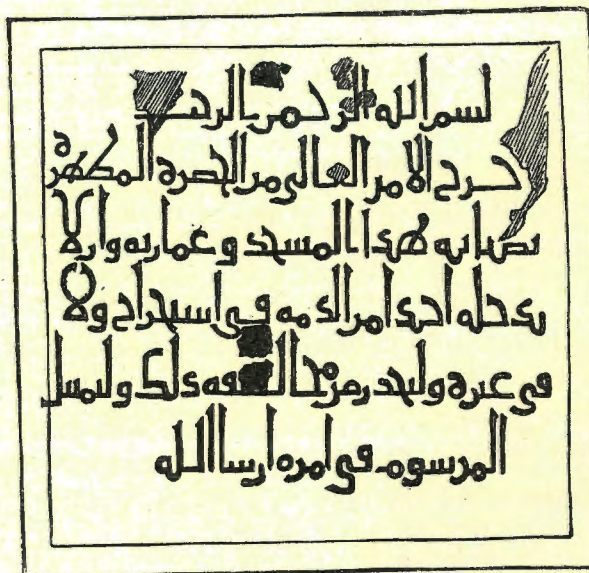 بسم الله الرحمن الرحيم
خرج الامر العالى من الحضرة المطهرة
بصيانة هذا المسجد وعمارته وان لا
يدخله احدا من الذمة فى استخراج ولا
فى غيره وليحذر من مخالفة ذلك وليمتثل
المرسوم فى امره ان شا الله